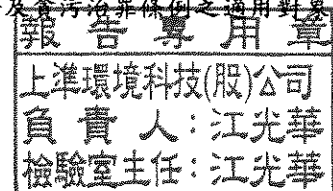 及貪污治罪條例之適用對象
報告專用章
上準環境科技(股)公司
負責人:江光華
檢驗室主任:江光華